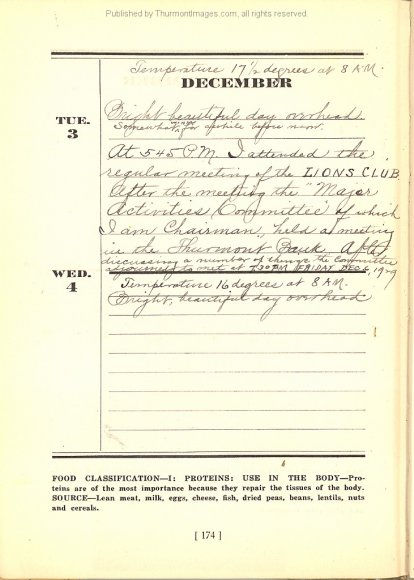 Published by ThurmontImages.com, all rights reserved.
Temperature 17½ degrees at 8 A.M.
DECEMBER
TUE.
3
Bright beautiful day overhead
Somewhat windy for awhile before noon.
At 545 P.M. I attended the
regular meeting of the LIONS CLUB
After the meeting the "Major
Activities Committee" of which
I am Chairman, held a meeting
in the Thurmont Bank. After
discussing a number of things the Committee
adjourned to met at 7.30 P.M. FRIDAY DEC 6, 1929
WED.
4
Temperature 16 degrees at 8 A.M.
Bright, beautiful day overhead
FOOD CLASSIFICATION—I: PROTEINS: USE IN THE BODY—Pro-
teins are of the most importance because they repair the tissues of the body.
SOURCE—Lean meat, milk, eggs, cheese, fish, dried peas, beans, lentils, nuts
and cereals.
[ 174 ]